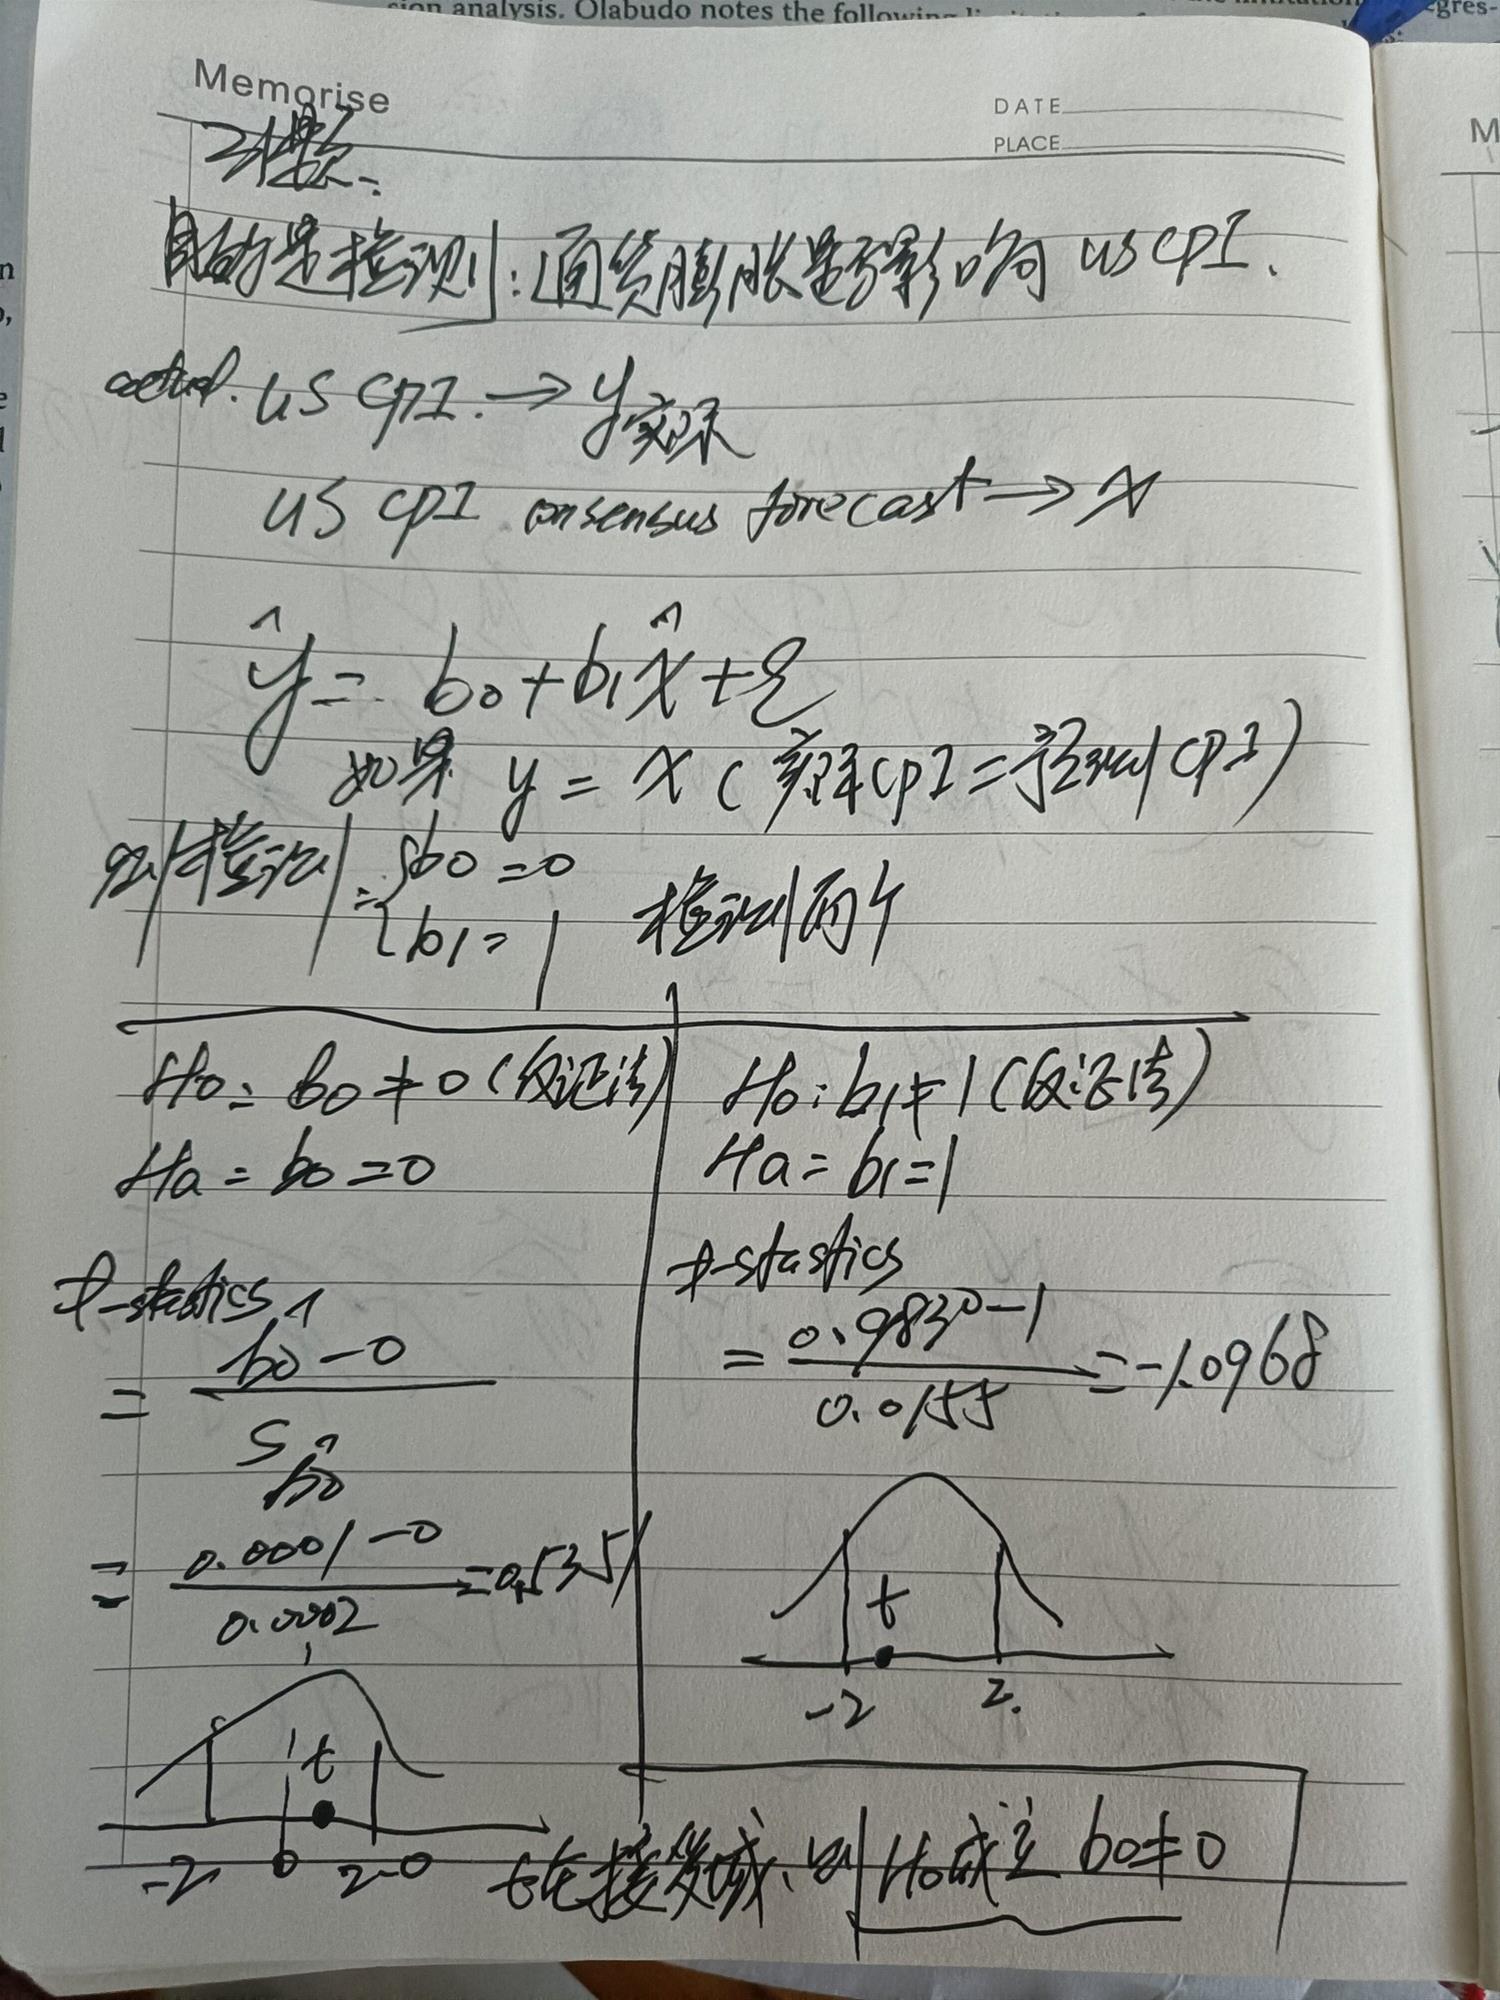 sion analysis. Olabudo notes the following
egres-
Memorise
DATE
PLACE
目的是检测:通货膨胀是否影响 US CPI.
actual. US CPI. → y实际
US CPI consensus forecast → x
ŷ = b0 + b1x̂ + ε
如果 y = x (实际CPI = 预测CPI)
则检测 = { b0 = 0
b1 = 1 检测两个
Ho = b0 ≠ 0 (反证法)
Ha = b0 = 0
t-stastics
= b̂0 - 0 / S b̂0
= 0.0001 - 0 / 0.0002 = 0.5351
t
-2 0 2.0
Ho: b1 ≠ 1 (反证法)
Ha = b1 = 1
t-stastics
= 0.9830 - 1 / 0.0155 = -1.0968
t
-2 2.
t在接受域、则 Ho成立 b0 ≠ 0